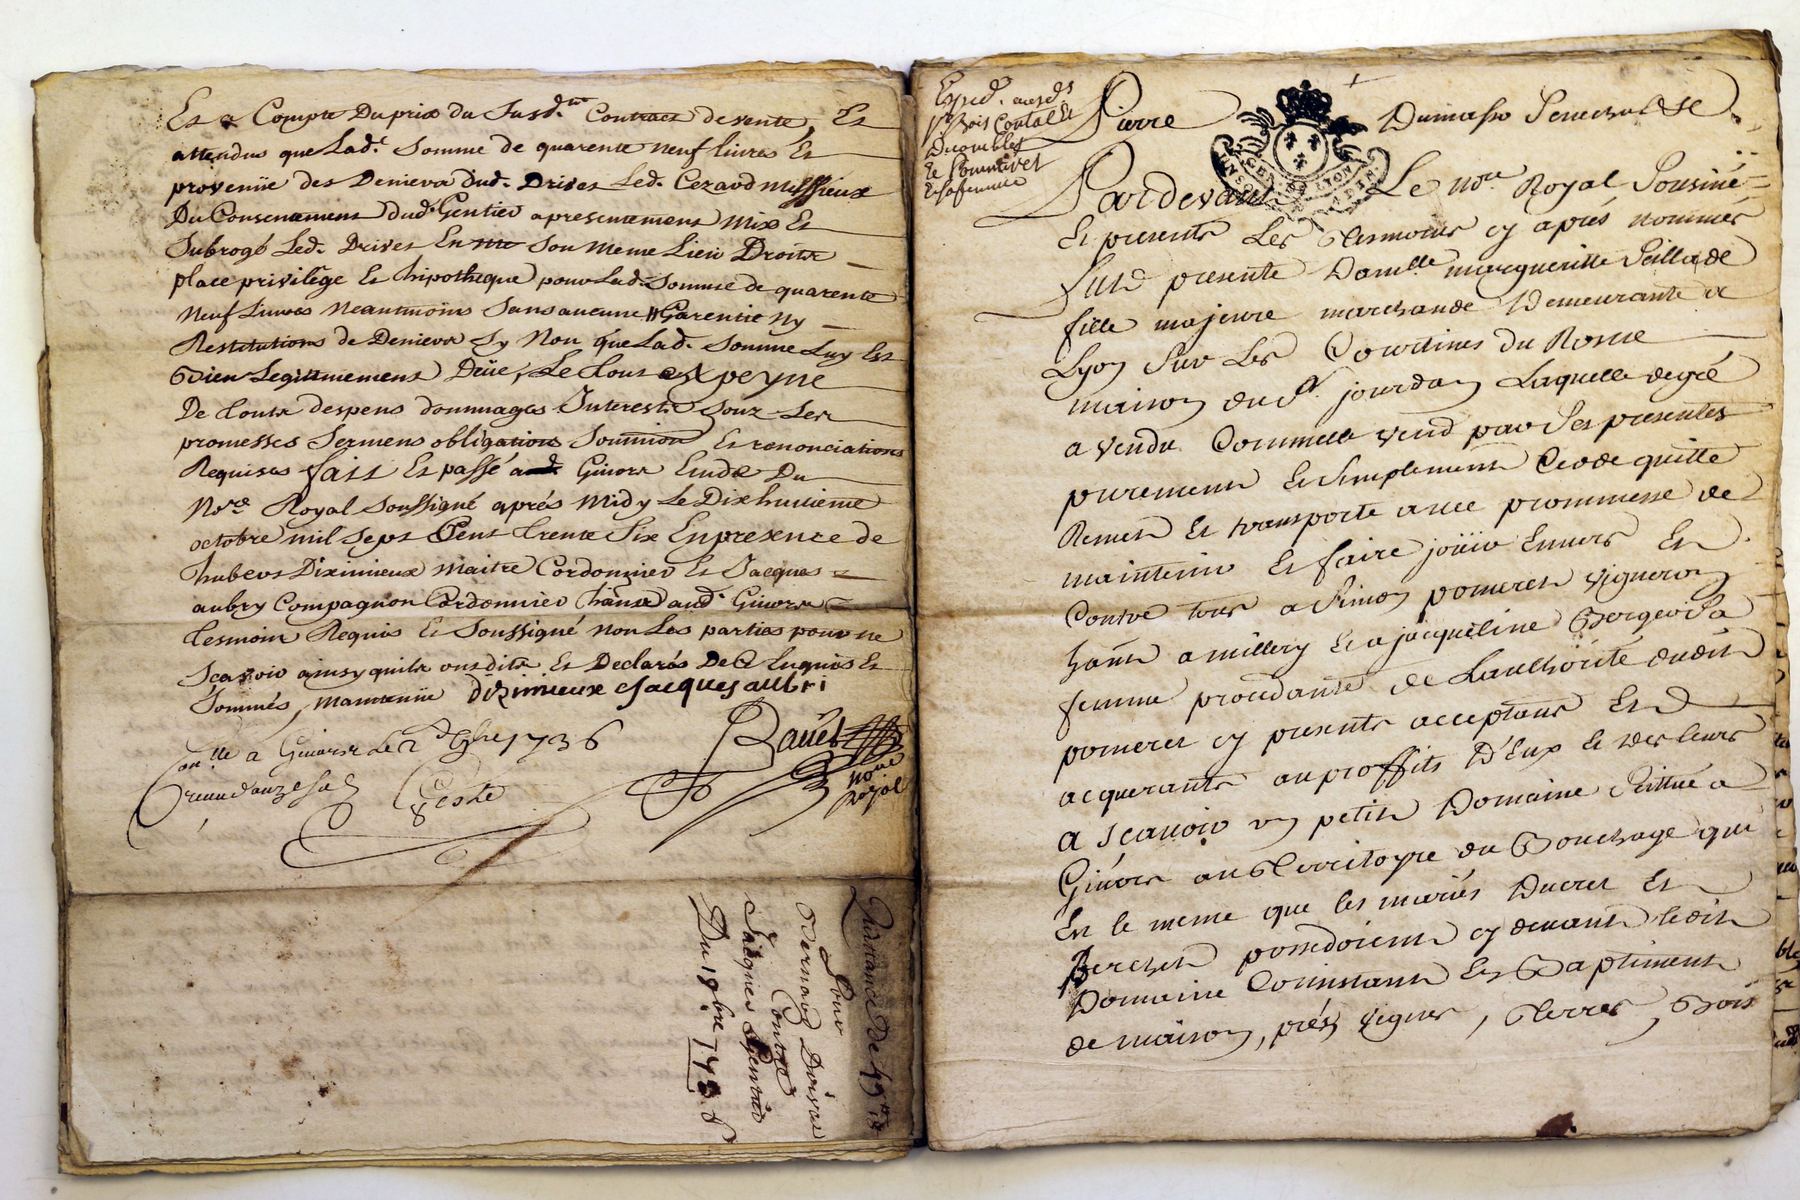 Et a Compte Du prix du Susd.t Contract de vente, Et
attendu que Lad.e Somme de quarente neuf livres Et
provenüe des Deniers dud. Drivet Led. Cezard Messieux
Du Consentement dud. Gentier a presentement Mis Et
Subrogé Led. Drivet En Son meme Lieu Droits
place privilége Et hipotheque pour Lad. Somme de quarente
neuf Livres neantmoins Sans aucune Garentie ny
Restitutions de Deniers Sy Non que Lad. Somme Luy Est
Bien Legitimement Düe, Le tout a peyne
De touts despens dommages Interests Souz Les
promesses Sermens obligations Soumion Et renonciations
Requises fait Et passé Givors Etude Du
No.re Royal Soussigné aprés Midy Le Dixhuitieme
octobre mil Sept Cent trente Six En presence de
hubert Diximieux maitre Cordonnier Et Jacques
aubry Compagnon Cordonnier aud. Givors
tesmoin Requis Et Soussigné non Les parties pour ne
Scavoir ainsy quils ont dits Et Declarés De Enquis Et
Sommés, maintenüe dizimieux Jacques aubri
Con.lle a Givors Le 2 9bre 1736
Coste
Royal
Quittance De 49
Pour
Bernard Drivet
Contre
Jacques
Du 19bre 1736
Exped. ausd.s
Bois Contal Et
Ducomblet
Et Pommeret
Et sa femme
Pierre Dumas Senechal Et
GEN. DE LYON
Pardevant Le No.re Royal Sousiné
Et presents Les tesmoins cy aprés nommés
fut presente Dam.lle margueritte Paillade
fille majeure marchande Demeurante a
Lyon Sur Les Courtines du Rosne
maison du S.r jourdan Laquelle de gré
a vendu Comme vend par Ses presentes
purement Et Simplement Cede quitte
Remet Et transporte avec prommesse de
maintenir Et faire joüir Envers Et
Contre tous a Simon pomeret vigneron
habt. a millery Et a jacqueline Bergeot Sa
femme procedante de L'authorité dudit
pomeret cy presents acceptans Et
acquerants au proffits D'Eux Et des leurs
a Scavoir un petit Domaine Scittué a
Givors au Territoyre du Bouchage qui
Est le meme que les mariés Ducret Et
Berchet possedoient cy devant ledit
Domaine Consistant En Baptiment
de maison, prés, vignes, Terres, Bois